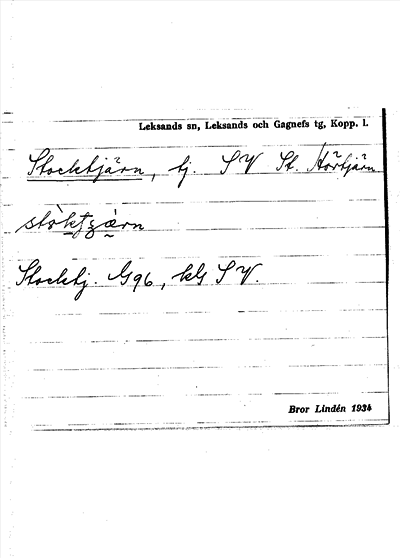 Leksands sn, Leksands och Gagnefs tg, Kopp. l.
Stocktjärn, tj. SV St. Hörtjärn
Stocktj. G96, SV.
Bror Lindén 1934